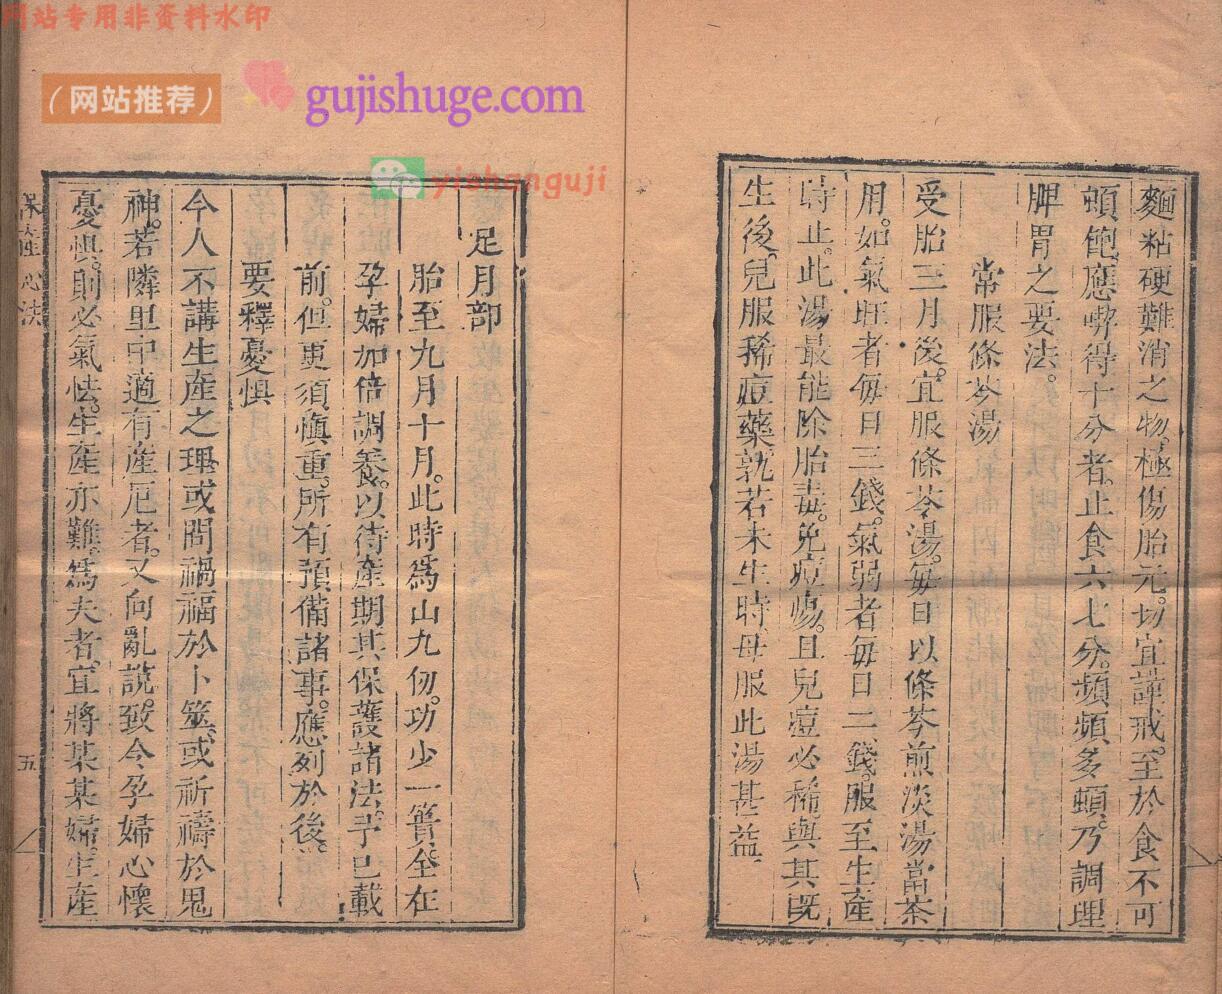 网站专用非资料水印
（网站推荐）
gujishuge.com
yishanguji
麵粘硬難消之物。極傷胎元。切宜謹戒。至於食不可
頓飽。應喫得十分者。止食六七分。頻頻多頓。乃調理
脾胃之要法。
常服條芩湯
受胎三月後。宜服條芩湯。每日以條芩煎淡湯當茶
用。如氣旺者每日三錢。氣弱者每日二錢。服至生產
時止。此湯最能除胎毒。免痘瘍。且兒痘必稀。與其既
生後。兒服稀痘藥。孰若未生時。母服此湯甚益。
足月部
胎至九月十月。此時爲山九仞。功少一簣。全在
孕婦加倍調養。以待產期。其保護諸法。予已載
前。但更須愼重。所有預備諸事。應列於後。
要釋憂惧
今人不講生產之理。或問禍福於卜筮。或祈禱於鬼
神。若隣里中適有產厄者。又向亂說。致令孕婦心懷
憂惧。則必氣怯。生產亦難。爲夫者。宜將某某婦。生產
保產心法
五